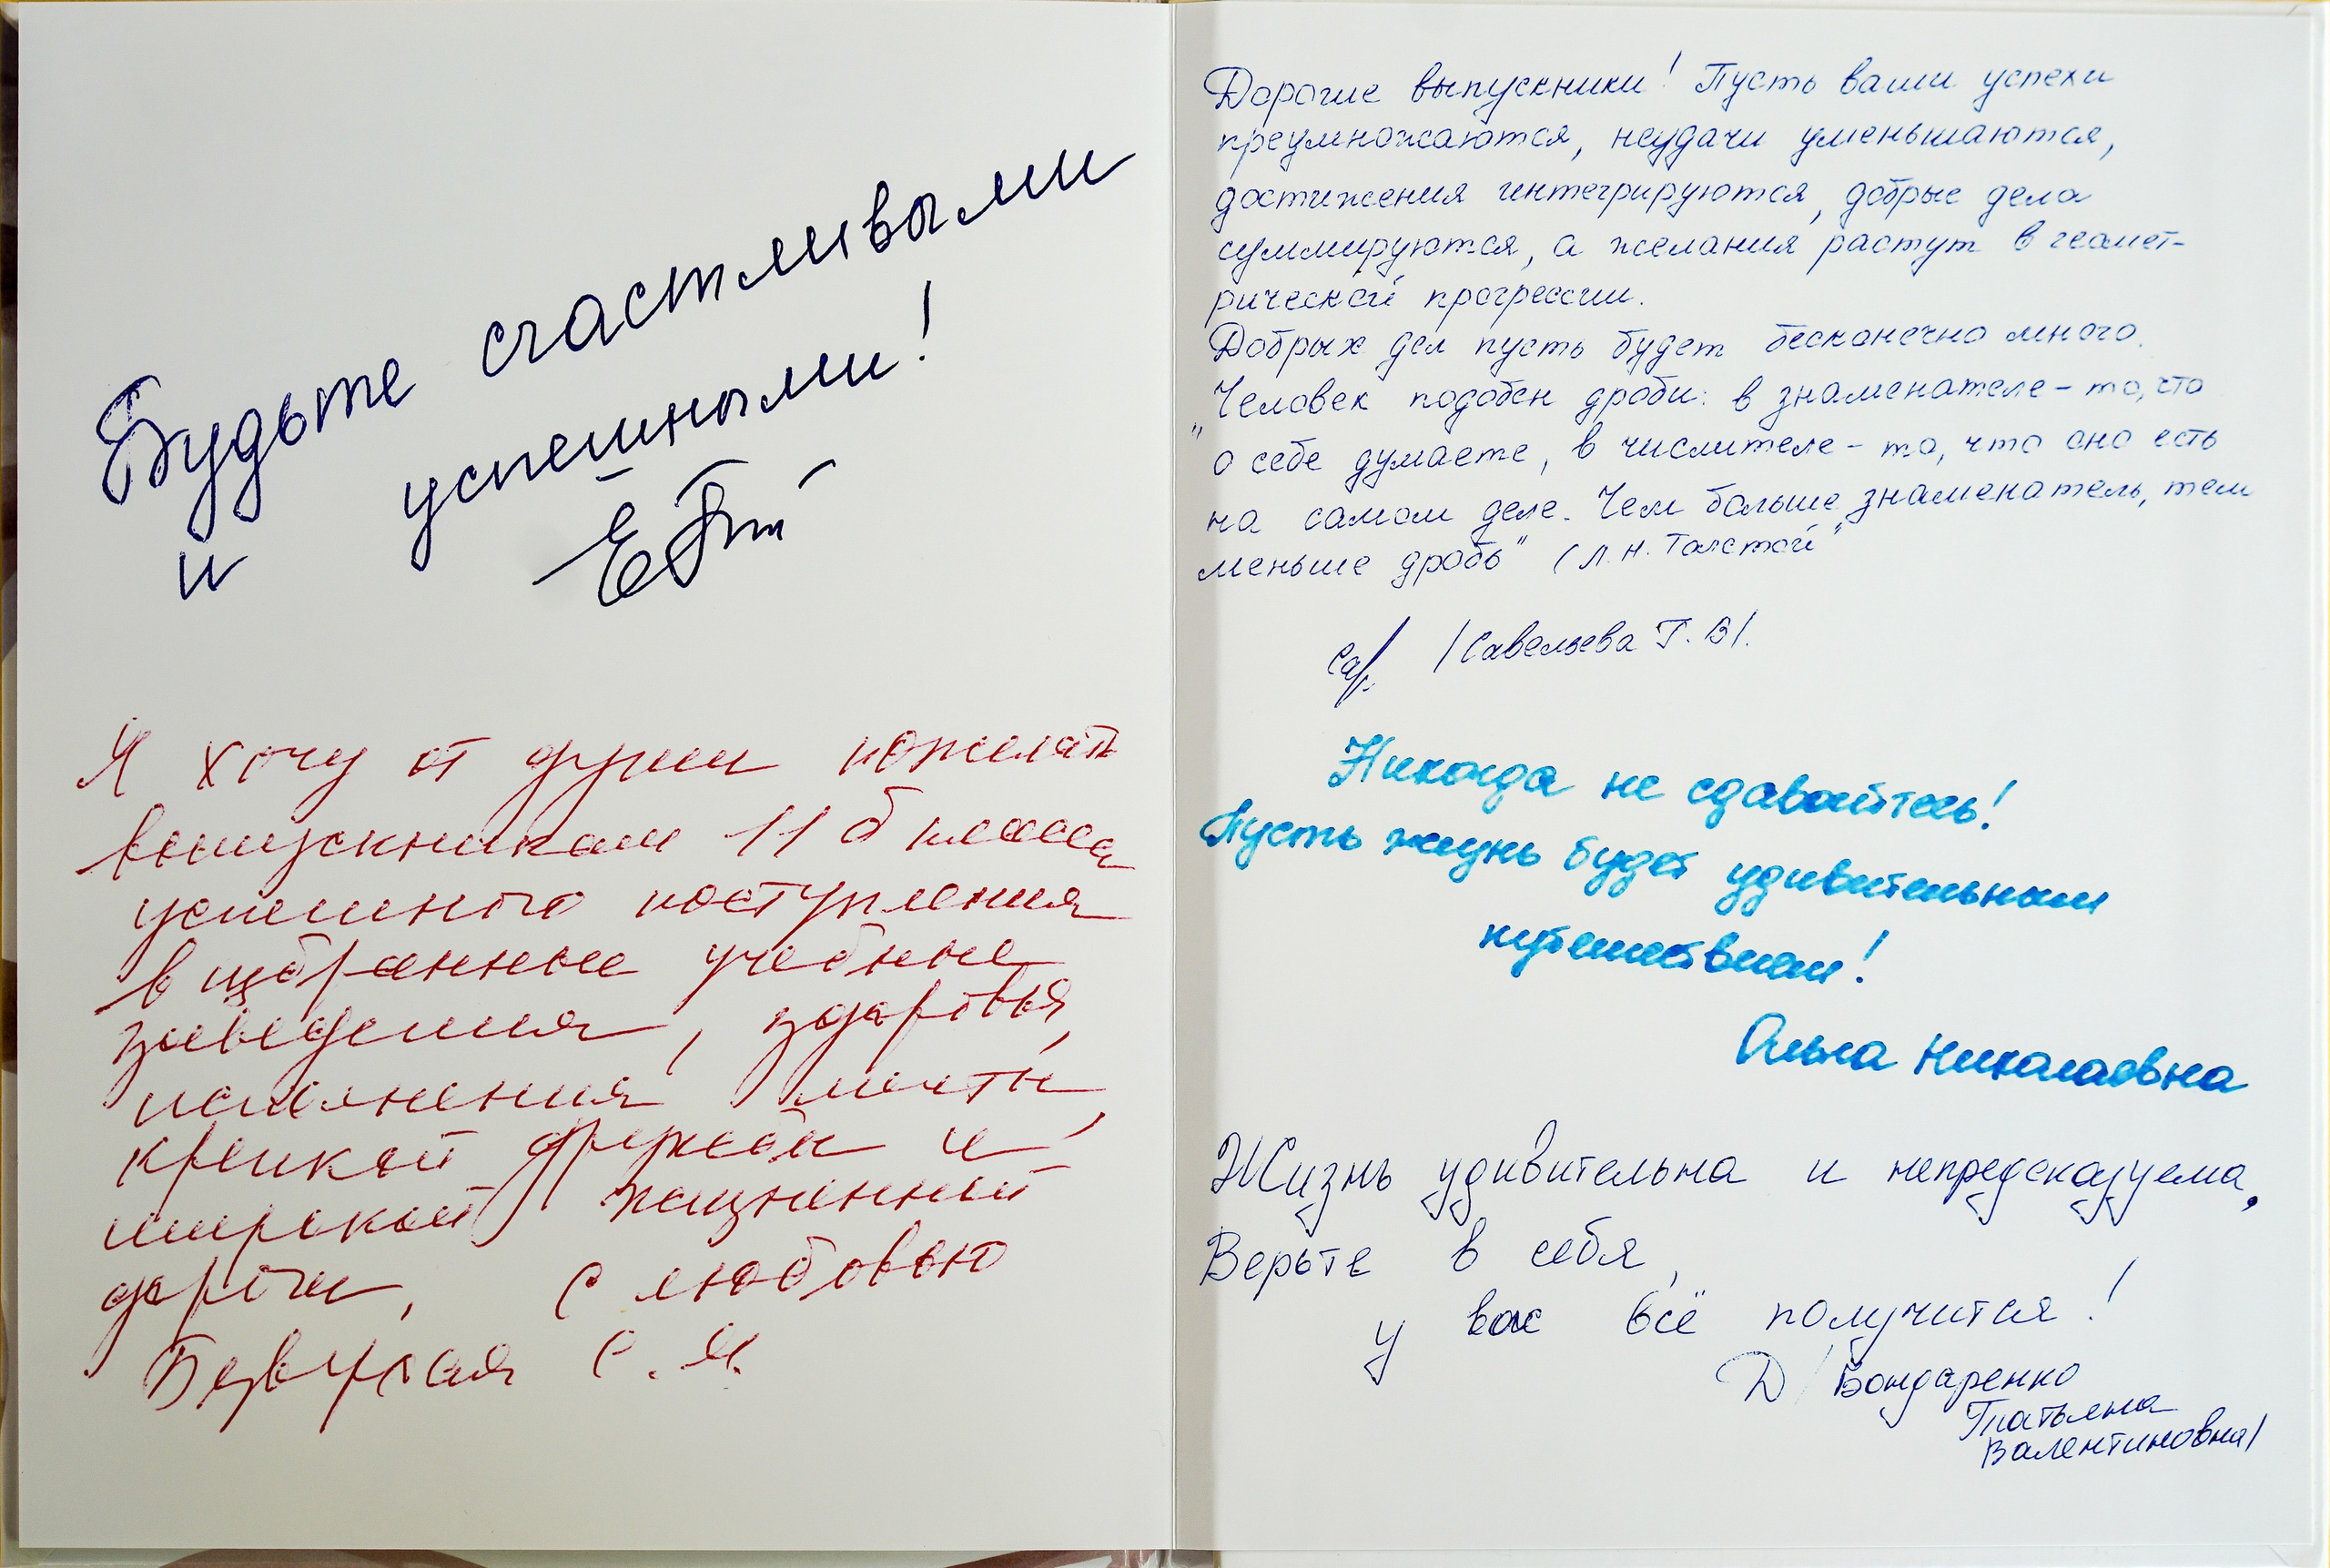 Будьте счастливыми
и успешными!
Я хочу от души пожелать
выпускникам 11 б класса
успешного поступления
в избранные учебные
заведения, здоровья,
исполнения мечты,
крепкой дружбы и
широкой жизненной
дороги, с любовью
С. Я.
Дорогие выпускники! Пусть ваши успехи
преумножаются, неудачи уменьшаются,
достижения интегрируются, добрые дела
суммируются, а желания растут в геомет-
рической прогрессии.
Добрых дел пусть будет бесконечно много.
„Человек подобен дроби: в знаменателе – то, что
о себе думаете, в числителе – то, что оно есть
на самом деле. Чем больше знаменатель, тем
меньше дробь" (Л.Н. Толстой"
/Савельева Г. В/.
Никогда не сдавайтесь!
Пусть жизнь будет удивительным
путешествием!
Николаевна
Жизнь удивительна и непредсказуема.
Верьте в себя,
у вас всё получится!
/Бондаренко
Татьяна
Валентиновна/